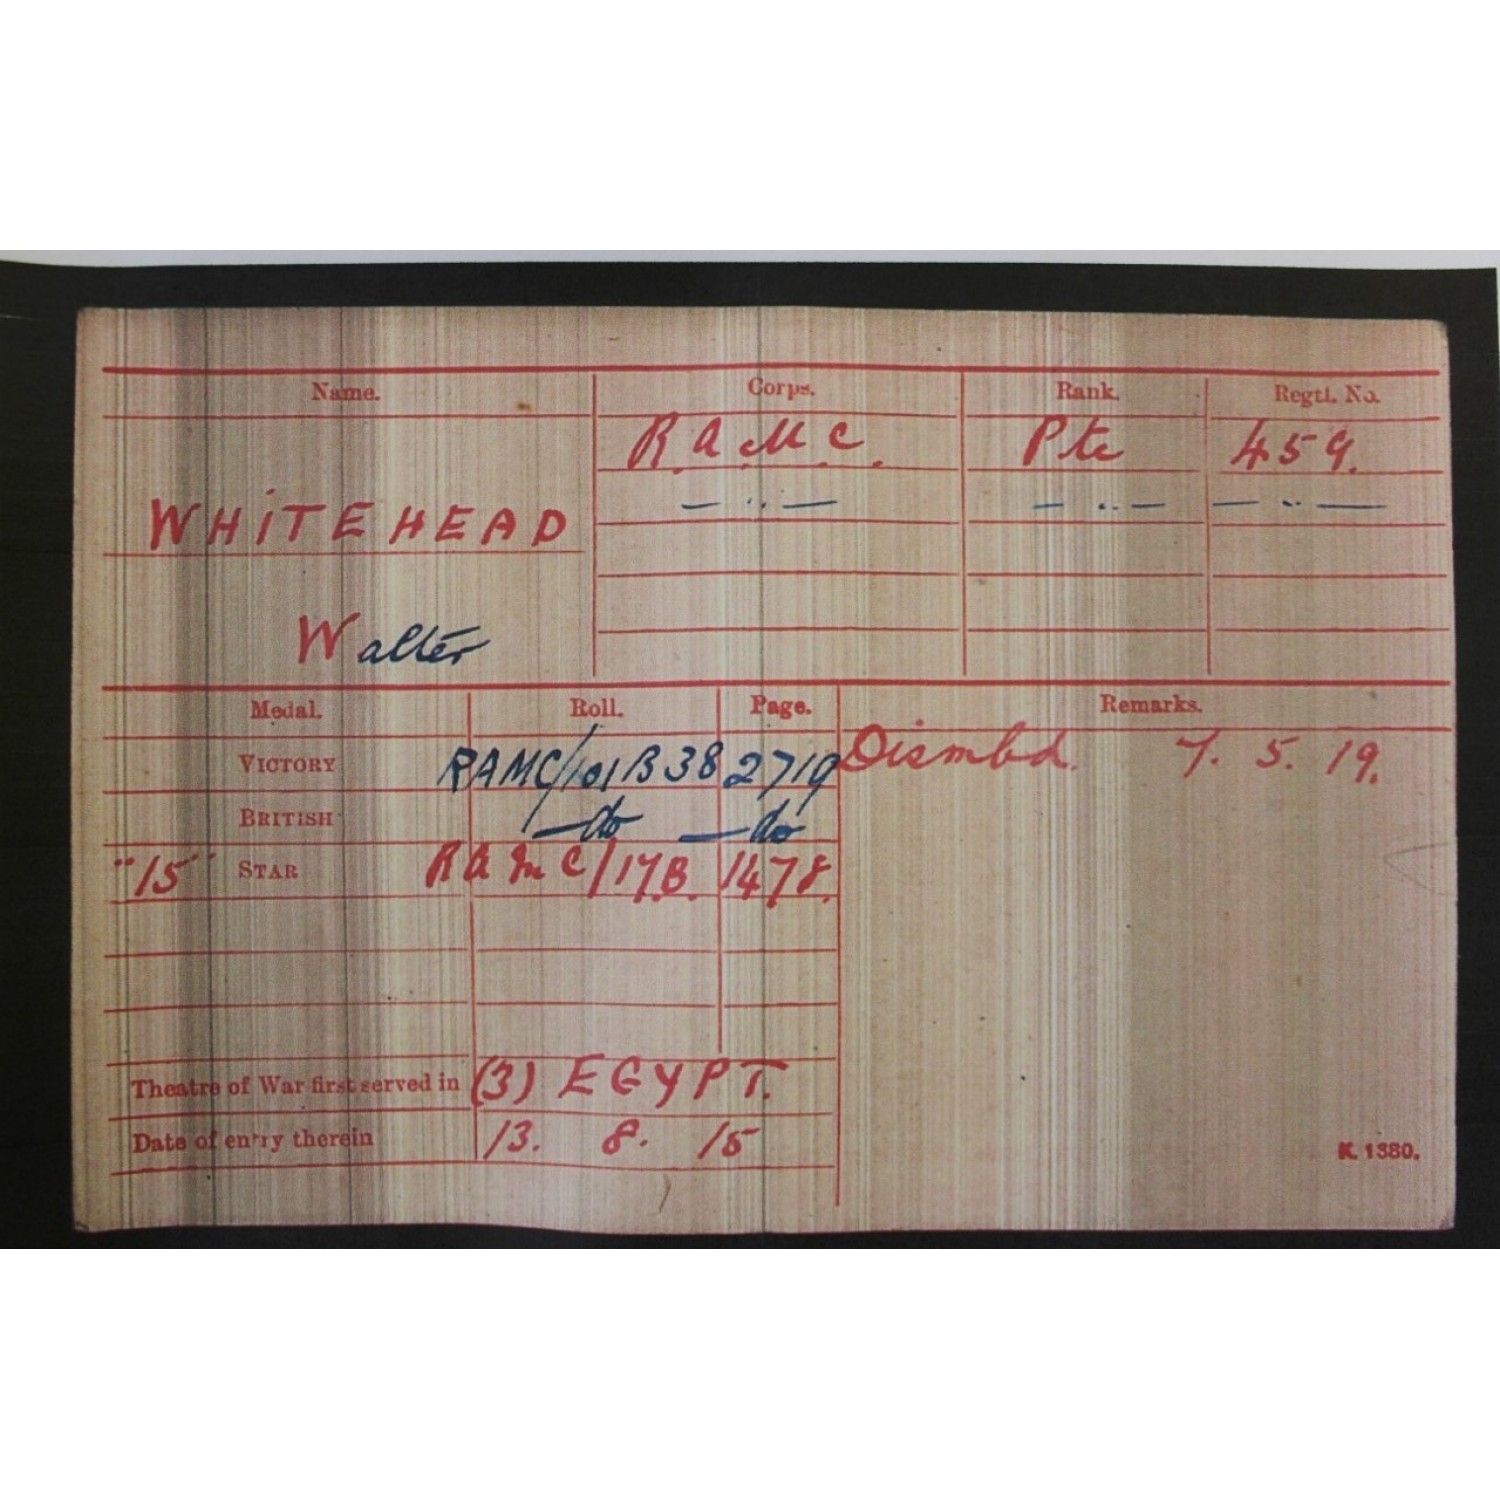 Name. Corps. Rank. Regtl. No.
R.A.M.C. Pte 459.
— " — — " — — " —
WHITEHEAD
Walter
Medal. Roll. Page. Remarks.
VICTORY RAMC/101B38 2719 Dismbd. 7. 5. 19.
BRITISH —do —do
"15" STAR RAMC/17B. 1478.
Theatre of War first served in (3) EGYPT.
Date of entry therein 13. 8. 15
K. 1380.